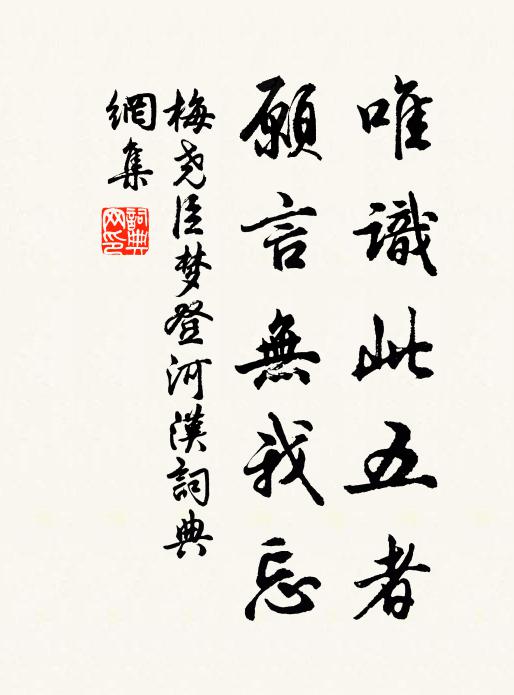 唯識此五者
願言無我忘
梅尧臣梦登河漢詞典
網集
詞典
网印